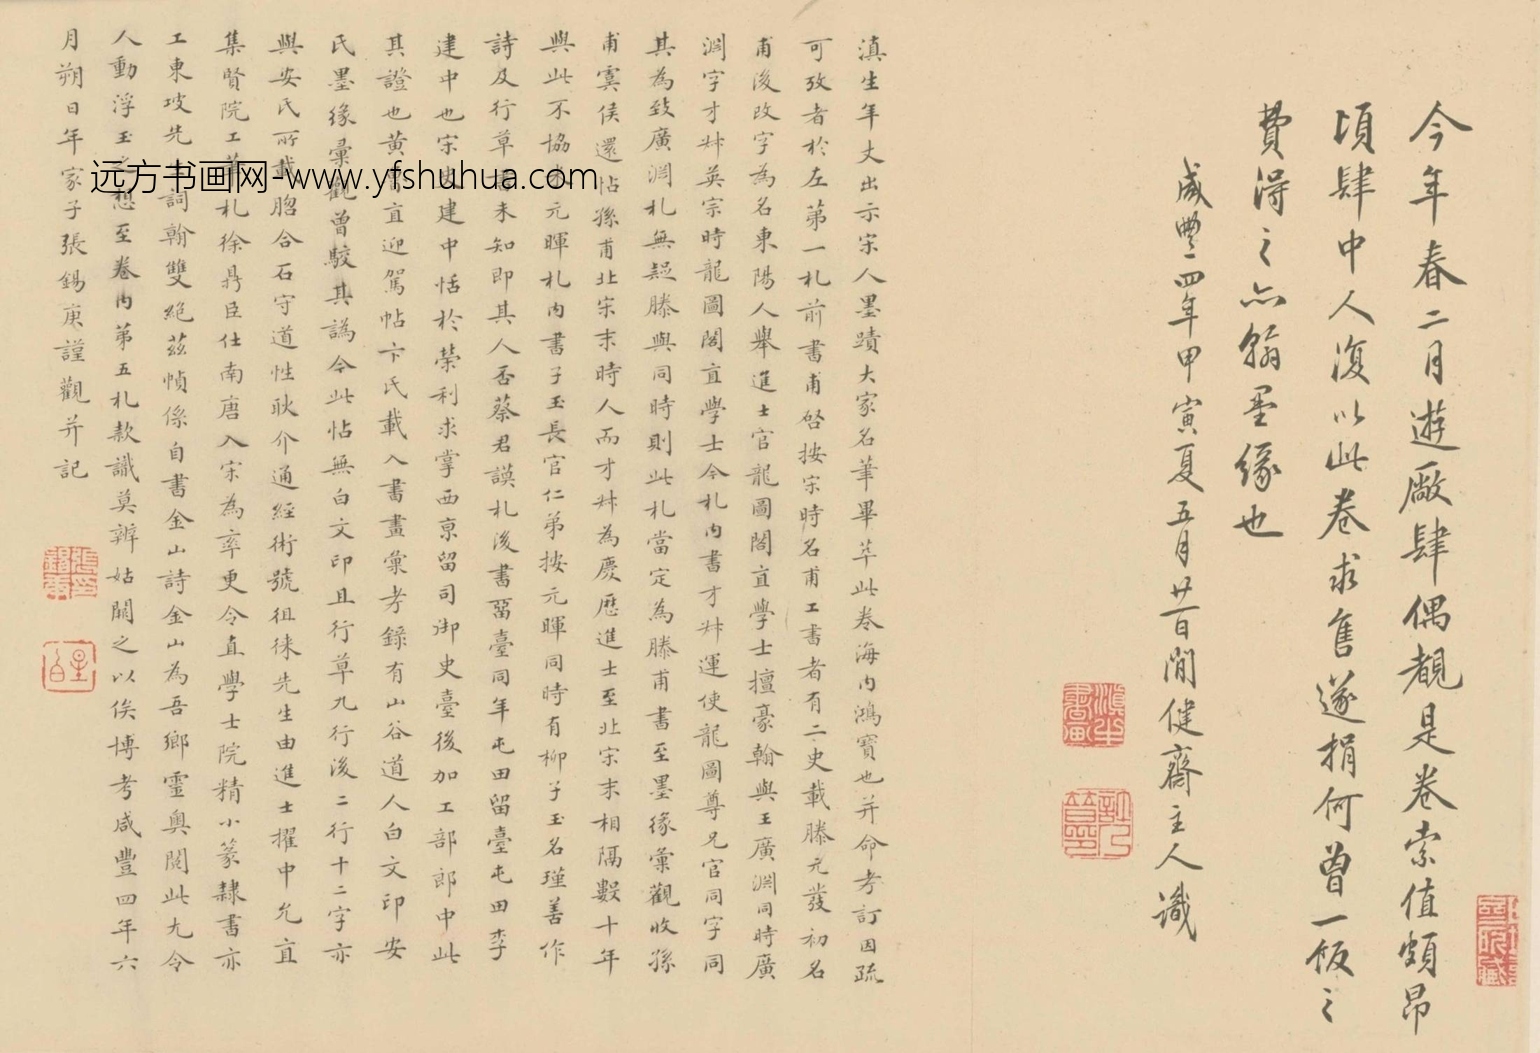 今年春二月遊廠肆偶覩是卷索值頗昂
頃肆中人復以此卷求售遂捐何曾一飯之
費得之亦翰墨緣也
咸豐四年甲寅夏五月廿日間健齋主人識
滇生年丈出示宋人墨蹟大家名筆畢萃此卷海内鴻寶也并命考訂因疏
可攷者於左第一札前書甫啓按宋時名甫工書者有二史載滕元發初名
甫後改字為名東陽人舉進士官龍圖閣直學士擅豪翰與王廣淵同時廣
淵字才尗英宗時龍圖閣直學士今札内書才尗運使龍圖尊兄官同字同
其為致廣淵札無疑滕與同時則此札當定為滕甫書至墨緣彙觀收孫
甫寞侯還帖孫甫北宋末時人而才尗為慶歷進士至北宋末相隔數十年
與此不協米元暉札内書子玉長官仁弟按元暉同時有柳子玉名瑾善作
詩及行草書未知即其人否蔡君謨札後書留臺同年屯田留臺屯田李
建中也宋史建中恬於榮利求掌西京留司御史臺後加工部郎中此
其證也黄書直迎駕帖卞氏載入書畫彙考錄有山谷道人白文印安
氏墨緣彙觀曾駮其譌今此帖無白文印且行草九行後二行十二字亦
與安氏所載脗合石守道性耿介通經術號徂徠先生由進士擢中允直
集賢院工筆札徐鼎臣仕南唐入宋為率更令直學士院精小篆隸書亦
工東坡先生詞翰雙絶茲幀係自書金山詩金山為吾鄉靈奥閲此尤令
人動浮玉之想至卷内第五札款識莫辨姑闕之以俟博考咸豐四年六
月朔日年家子張錫庚謹觀并記
远方书画网-www.yfshuhua.com
滇生書畫